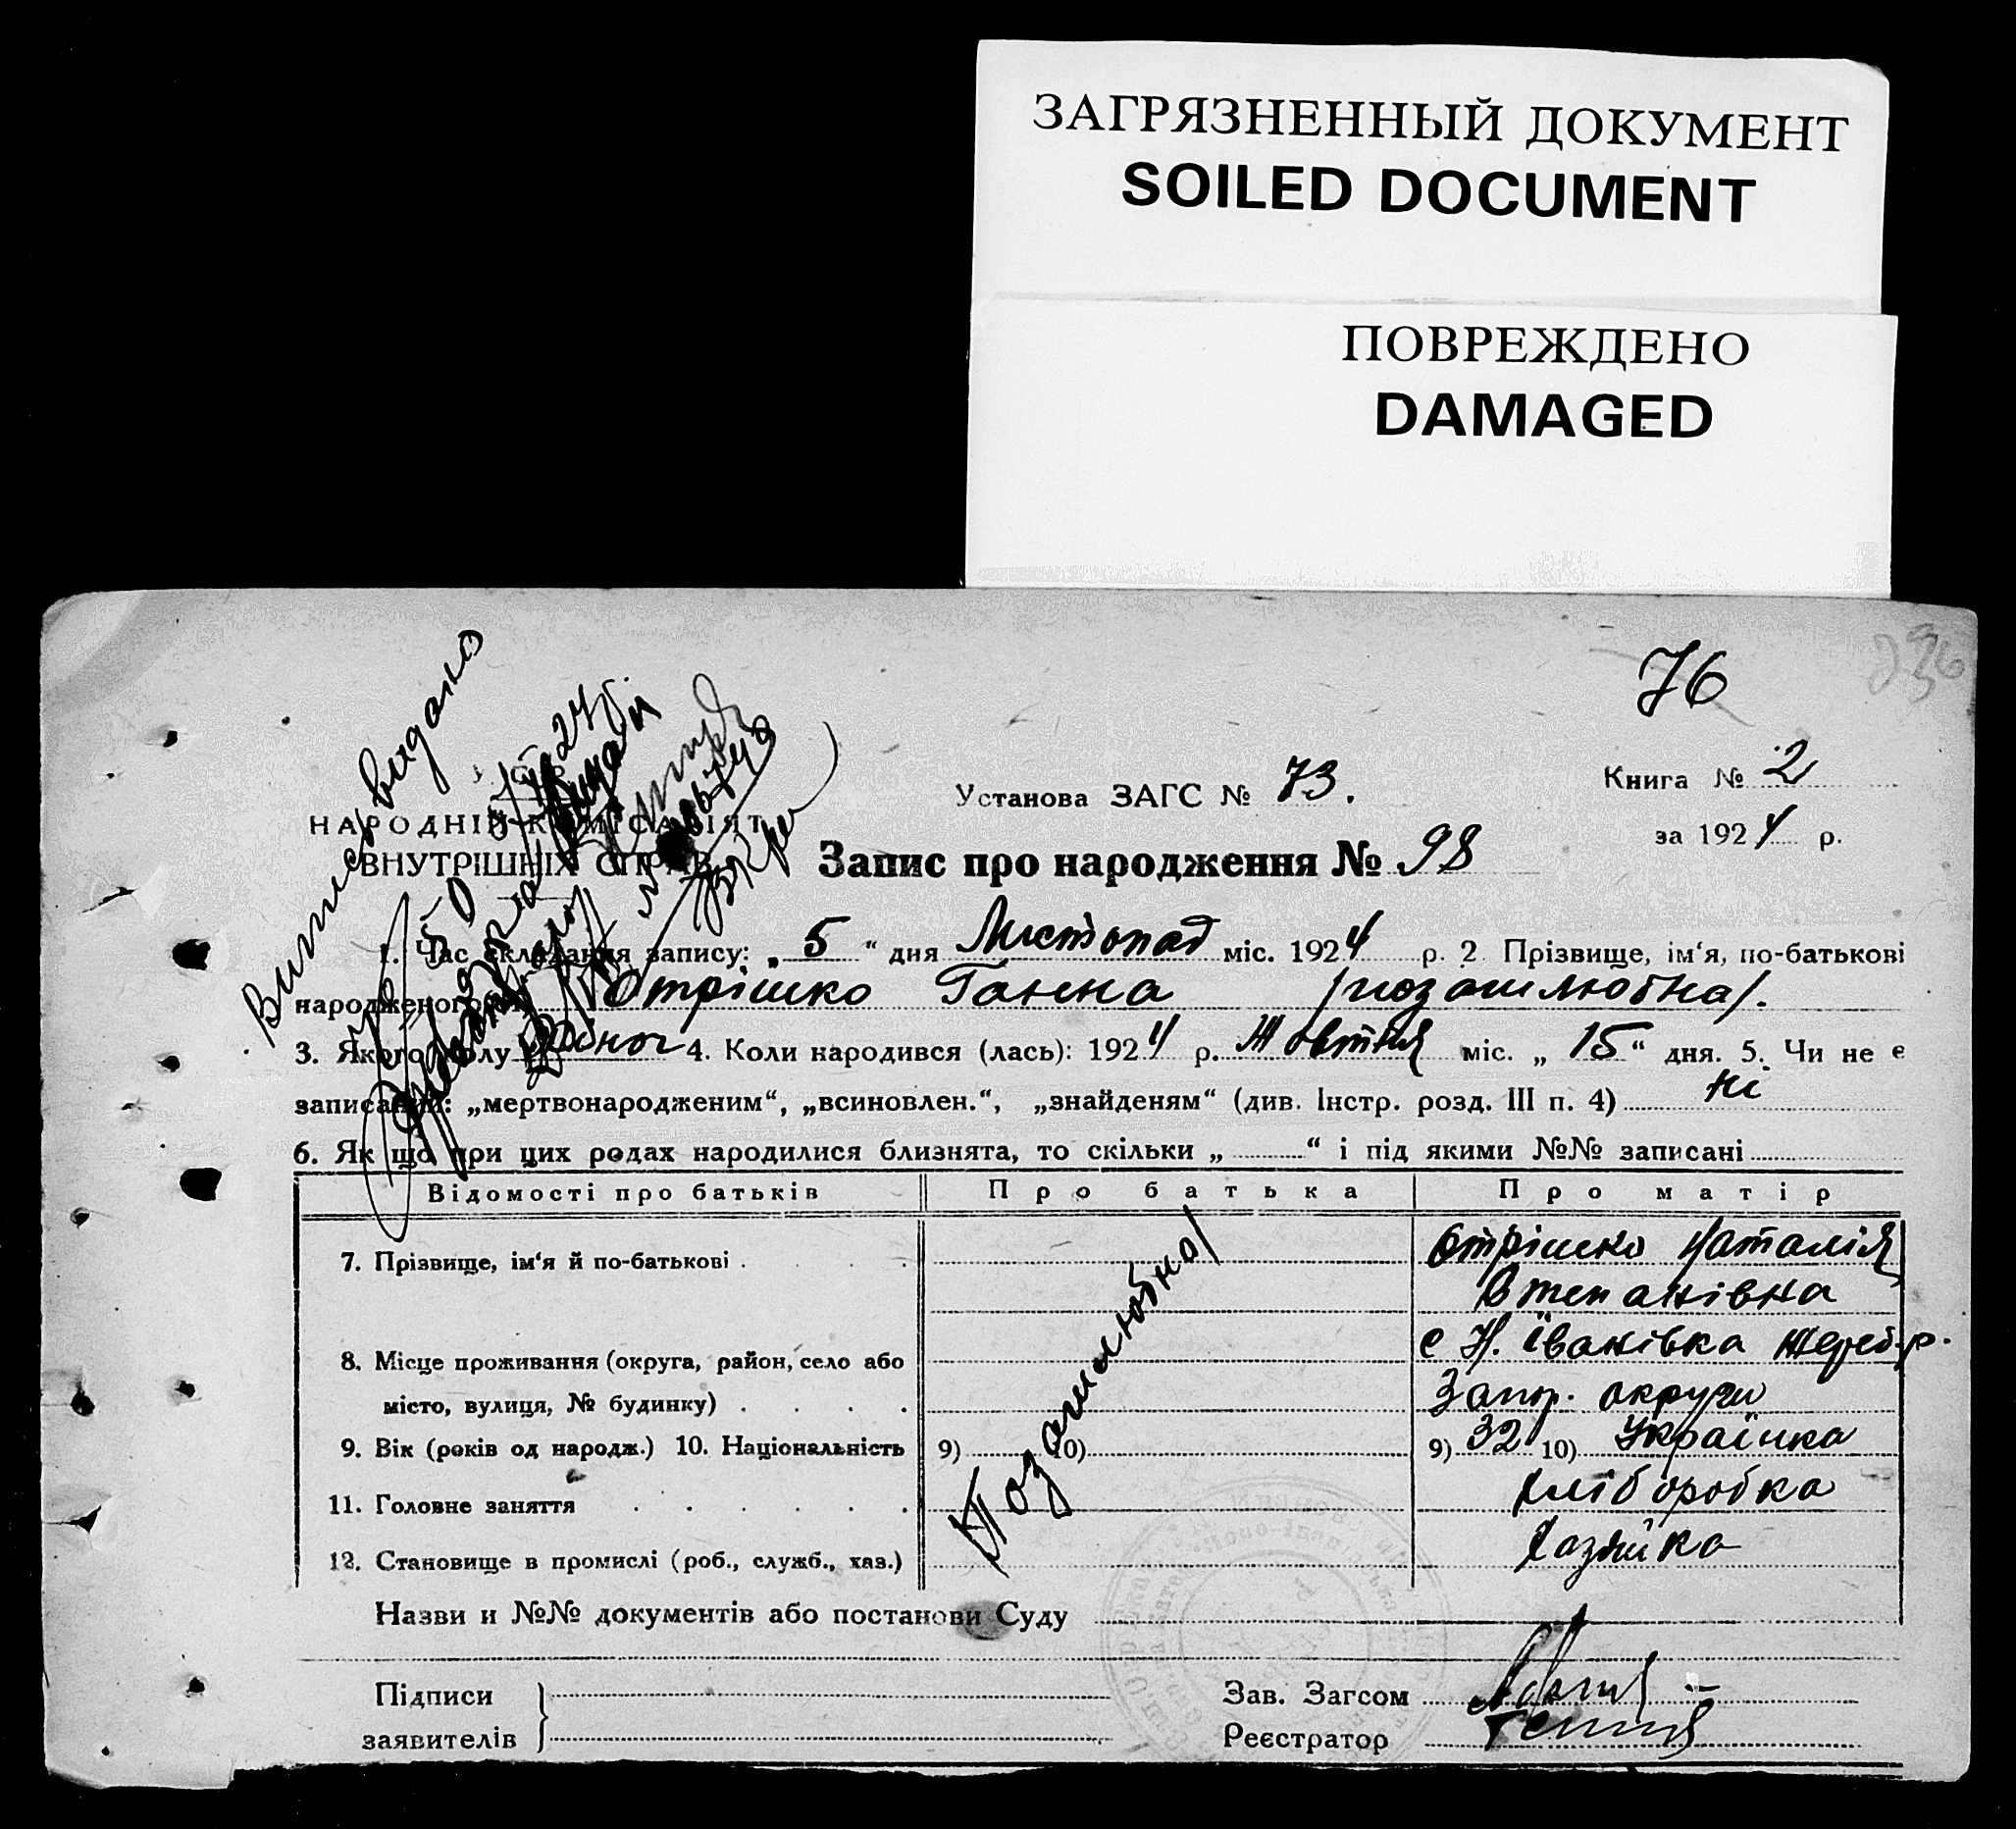 ЗАГРЯЗНЕННЫЙ ДОКУМЕНТ
SOILED DOCUMENT
ПОВРЕЖДЕНО
DAMAGED
76
Виписъ видано
Установа ЗАГС № 73.
Книга № 2
НАРОДНІЙ КОМІСАРІЯТ
за 1924 р.
ВНУТРІШНІХ СПРАВ
Запис про народження № 98
1. Час складання запису: „5“ дня Листопад міс. 1924 р. 2. Прізвище, ім‘я, по-батькові
народженого Отрішко Ганна /позашлюбна/.
3. Якого полу 4. Коли народився (лась): 1924 р. Жовтня міс. „15“ дня. 5. Чи не є
записаний: „мертвонародженим“, „всиновлен.“, „знайденям“ (див. Інстр. розд. III п. 4) ні
6. Як що при цих родах народилися близнята, то скільки „ “ і під якими №№ записані
Відомості про батьків Про батька Про матір
7. Прізвище, ім‘я й по-батькові . Отрішко Наталія
Степанівна
8. Місце проживання (округа, район, село або с Н. Іванівка Жереб. р.
місто, вулиця, № будинку) . Запор. округи
9. Вік (років од народж.) 10. Національність 9) 10) 9) 32 10) Українка
Позашлюбна/
11. Головне заняття хліборобка
12. Становище в промислі (роб., служб., хаз.) Хазяйка
Назви и №№ документів або постанови Суду
Підписи Зав. Загсом
заявителів Реєстратор